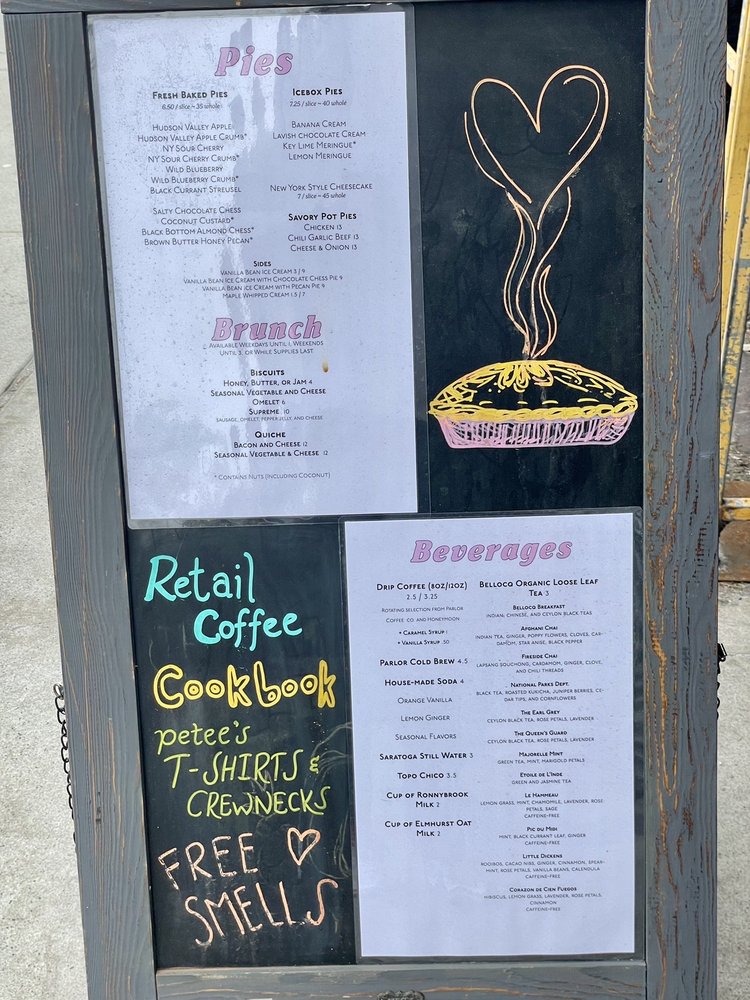 Pies
FRESH BAKED PIES
6.50 / slice ~ 35 whole
HUDSON VALLEY APPLE
HUDSON VALLEY APPLE CRUMB*
NY SOUR CHERRY
NY SOUR CHERRY CRUMB*
WILD BLUEBERRY
WILD BLUEBERRY CRUMB*
BLACK CURRANT STREUSEL
SALTY CHOCOLATE CHESS
COCONUT CUSTARD*
BLACK BOTTOM ALMOND CHESS*
BROWN BUTTER HONEY PECAN*
ICEBOX PIES
7.25 / slice ~ 40 whole
BANANA CREAM
LAVISH CHOCOLATE CREAM
KEY LIME MERINGUE*
LEMON MERINGUE
NEW YORK STYLE CHEESECAKE
7 / slice ~ 45 whole
SAVORY POT PIES
CHICKEN 13
CHILI GARLIC BEEF 13
CHEESE & ONION 13
SIDES
VANILLA BEAN ICE CREAM 3 / 9
VANILLA BEAN ICE CREAM WITH CHOCOLATE CHESS PIE 9
VANILLA BEAN ICE CREAM WITH PECAN PIE 9
MAPLE WHIPPED CREAM 1.5 / 7
Brunch
AVAILABLE WEEKDAYS UNTIL 1, WEEKENDS
UNTIL 3, OR WHILE SUPPLIES LAST
BISCUITS
HONEY, BUTTER, OR JAM 4
SEASONAL VEGETABLE AND CHEESE
OMELET 6
SUPREME 10
SAUSAGE, OMELET, PEPPER JELLY, AND CHEESE
QUICHE
BACON AND CHEESE 12
SEASONAL VEGETABLE & CHEESE 12
* CONTAINS NUTS (INCLUDING COCONUT)
Retail
Coffee
Cookbook
petee's
T-SHIRTS &
CREWNECKS
FREE
SMELLS
Beverages
DRIP COFFEE (8OZ/12OZ)
2.5 / 3.25
ROTATING SELECTION FROM PARLOR
COFFEE CO. AND HONEYMOON
+ CARAMEL SYRUP 1
+ VANILLA SYRUP .50
PARLOR COLD BREW 4.5
HOUSE-MADE SODA 4
ORANGE VANILLA
LEMON GINGER
SEASONAL FLAVORS
SARATOGA STILL WATER 3
TOPO CHICO 3.5
CUP OF RONNYBROOK
MILK 2
CUP OF ELMHURST OAT
MILK 2
BELLOCQ ORGANIC LOOSE LEAF
TEA 3
BELLOCQ BREAKFAST
INDIAN, CHINESE, AND CEYLON BLACK TEAS
AFGHANI CHAI
INDIAN TEA, GINGER, POPPY FLOWERS, CLOVES, CAR-
DAMOM, STAR ANISE, BLACK PEPPER
FIRESIDE CHAI
LAPSANG SOUCHONG, CARDAMOM, GINGER, CLOVE,
AND CHILI THREADS
NATIONAL PARKS DEPT.
BLACK TEA, ROASTED KUKICHA, JUNIPER BERRIES, CE-
DAR TIPS, AND CORNFLOWERS
THE EARL GREY
CEYLON BLACK TEA, ROSE PETALS, LAVENDER
THE QUEEN'S GUARD
CEYLON BLACK TEA, ROSE PETALS, LAVENDER
MAJORELLE MINT
GREEN TEA, MINT, MARIGOLD PETALS
ETOILE DE L'INDE
GREEN AND JASMINE TEA
LE HAMMEAU
LEMON GRASS, MINT, CHAMOMILE, LAVENDER, ROSE
PETALS, SAGE
CAFFEINE-FREE
PIC DU MIDI
MINT, BLACK CURRANT LEAF, GINGER
CAFFEINE-FREE
LITTLE DICKENS
ROOIBOS, CACAO NIBS, GINGER, CINNAMON, SPEAR-
MINT, ROSE PETALS, VANILLA BEANS, CALENDULA
CAFFEINE-FREE
CORAZON DE CIEN FUEGOS
HIBISCUS, LEMON GRASS, LAVENDER, ROSE PETALS,
CINNAMON
CAFFEINE-FREE